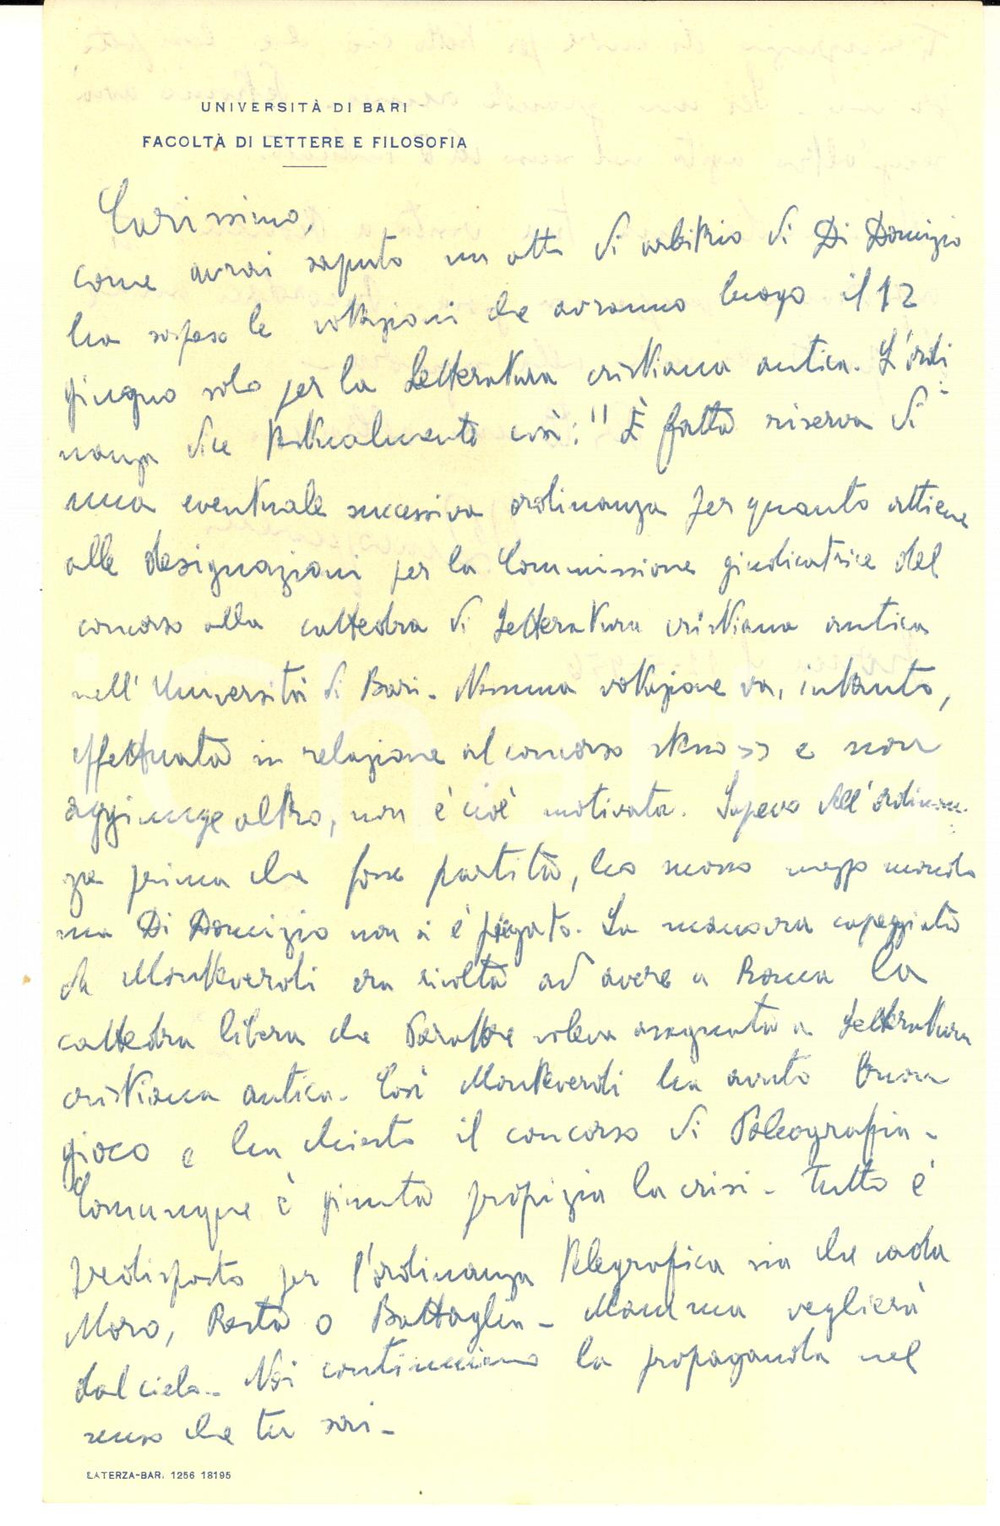 UNIVERSITÀ DI BARI
FACOLTÀ DI LETTERE E FILOSOFIA
Carissimo,
come avrai saputo un atto di arbitrio di Di Domizio
ha sospeso le votazioni che avranno luogo il 12
giugno solo per la Letteratura cristiana antica. L'ordi
nanza dice testualmente così: "È fatta riserva di
una eventuale successiva ordinanza per quanto attiene
alle designazioni per la Commissione giudicatrice del
concorso alla cattedra di Letteratura cristiana antica
nell'Università di Bari. Nessuna votazione va, intanto,
effettuata in relazione al concorso stesso >> e non
aggiunge altro, non è cioè motivata. Sapevo dell'ordinan-
za prima che fosse partita, ho mosso mezzo mondo
ma Di Domizio non si è piegato. La manovra capeggiata
da Monteverdi era rivolta ad avere a Roma la
cattedra libera che Paratore voleva assegnata a Letteratura
cristiana antica. Così Monteverdi ha avuto buon
gioco e ha chiesto il concorso di Paleografia.
Comunque è giunta propizia la crisi. Tutto è
predisposto per l'ordinanza telegrafica sia che cada
Moro, Resta o Battaglia. Mamma veglierà
dal cielo. Noi continuiamo la propaganda nel
senso che tu sai.
LATERZA-BAR. 1256 18195